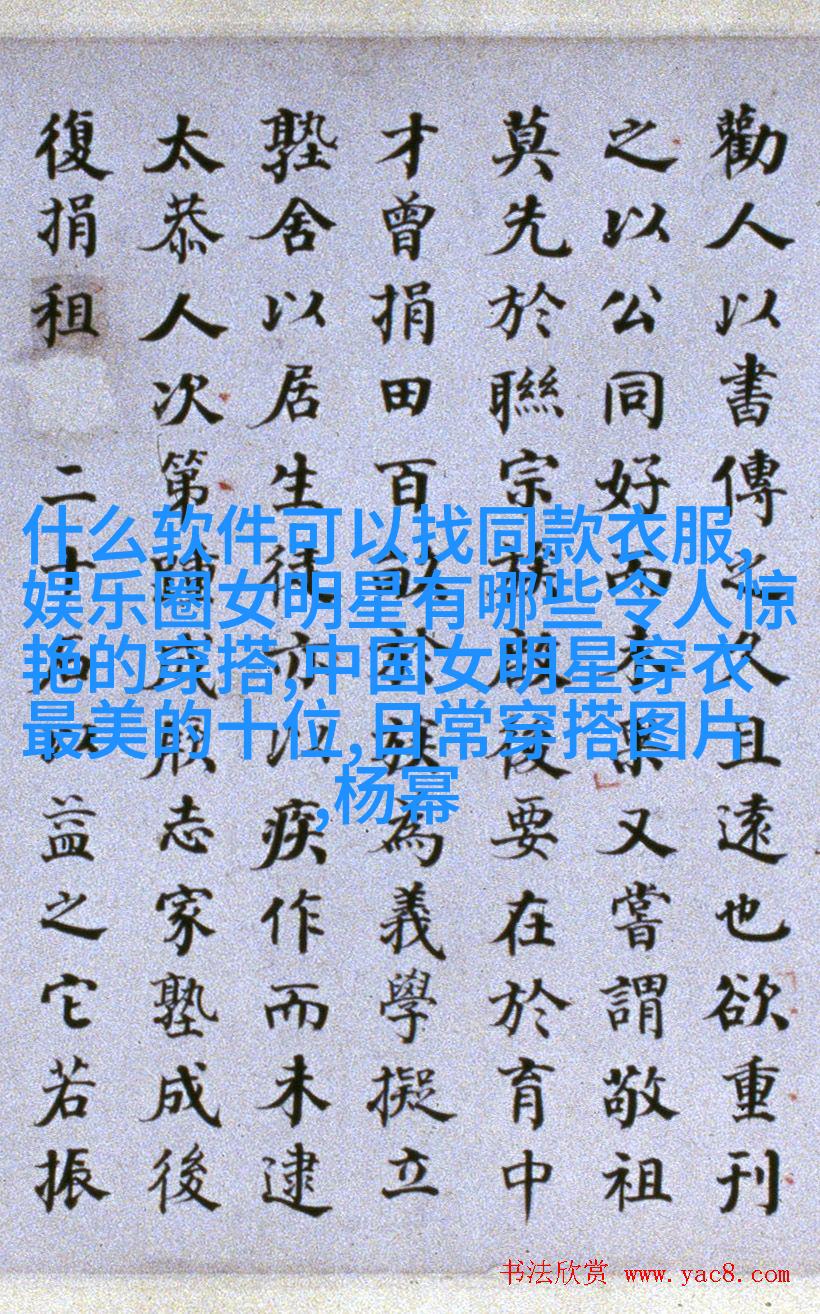 勸人以書傳之久且遠也欲重刊
之以公同好而未果又嘗謂敬祖
莫先於聯宗後要在於育中
才曾捐田百畝於族為義學擬立
塾舍以居生徒亦以疾作而未逮
太恭人次第踵成厥志家塾成後
復捐租二十石以益之它若振
什么软件可以找同款衣服,
娱乐圈女明星有哪些令人惊
艳的穿搭,中国女明星穿衣
最美的十位,日常穿搭图片
,杨幂
书法欣赏 www.yac8.com